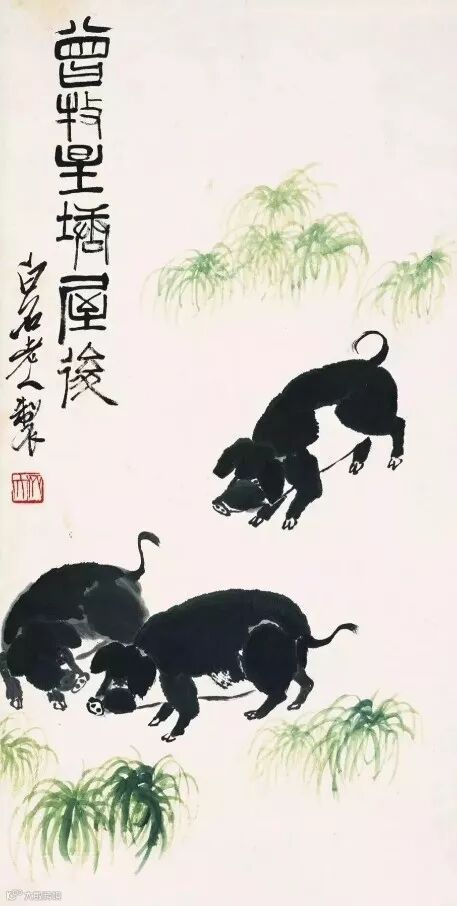 曾牧星塘屋後
白石老人製
木人